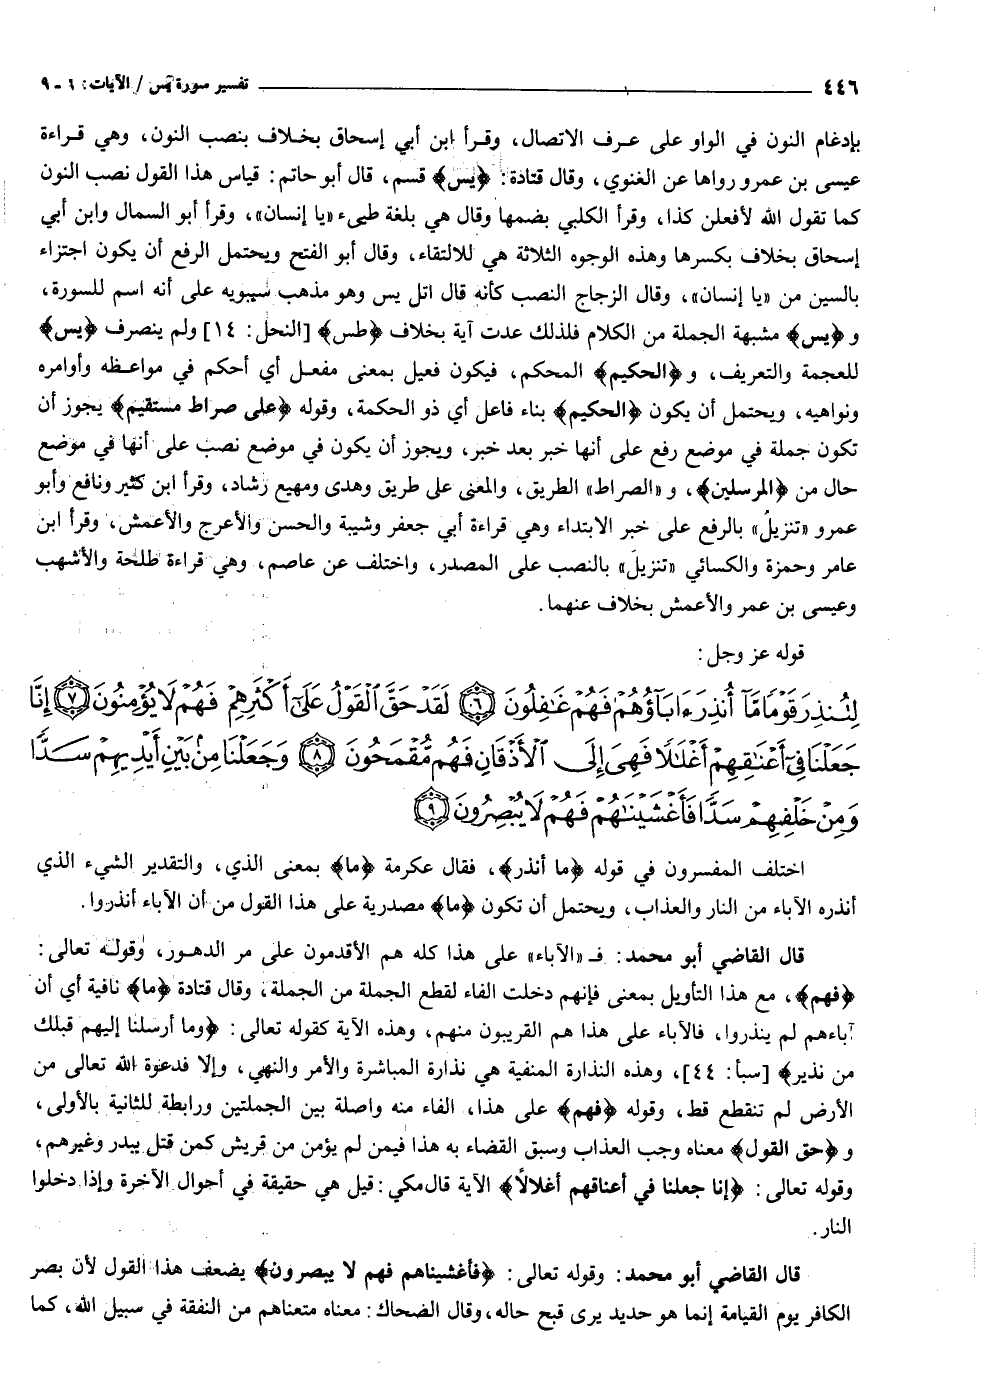 ٤٤٦ تفسير سورة يس / الآيات: ٦ - ٩
بإدغام النون في الواو على عرف الاتصال، وقرأ ابن أبي إسحاق بخلاف بنصب النون، وهي قراءة
عيسى بن عمرو رواها عن الغنوي، وقال قتادة: ﴿يس﴾ قسم، قال أبو حاتم: قياس هذا القول نصب النون
كما تقول الله لأفعلن كذا، وقرأ الكلبي بضمها وقال هي بلغة طيىء «يا إنسان»، وقرأ أبو السمال وابن أبي
إسحاق بخلاف بكسرها وهذه الوجوه الثلاثة هي للالتقاء، وقال أبو الفتح ويحتمل الرفع أن يكون اجتزاء
بالسين من «يا إنسان»، وقال الزجاج النصب كأنه قال اتل يس وهو مذهب سيبويه على أنه اسم للسورة،
و ﴿يس﴾ مشبهة الجملة من الكلام فلذلك عدت آية بخلاف ﴿طس﴾ [النحل: ١٤] ولم ينصرف ﴿يس﴾
للعجمة والتعريف، و ﴿الحكيم﴾ المحكم، فيكون فعيل بمعنى مفعل أي أحكم في مواعظه وأوامره
ونواهيه، ويحتمل أن يكون ﴿الحكيم﴾ بناء فاعل أي ذو الحكمة، وقوله ﴿على صراط مستقيم﴾ يجوز أن
تكون جملة في موضع رفع على أنها خبر بعد خبر، ويجوز أن يكون في موضع نصب على أنها في موضع
حال من ﴿المرسلين﴾، و «الصراط» الطريق، والمعنى على طريق وهدى ومهيع رشاد، وقرأ ابن كثير ونافع وأبو
عمرو «تنزيلُ» بالرفع على خبر الابتداء وهي قراءة أبي جعفر وشيبة والحسن والأعرج والأعمش، وقرأ ابن
عامر وحمزة والكسائي «تنزيلَ» بالنصب على المصدر، واختلف عن عاصم، وهي قراءة طلحة والأشهب
وعيسى بن عمر والأعمش بخلاف عنهما.
قوله عز وجل:
لِتُنذِرَ قَوْمًا مَّا أُنذِرَ ءَابَآؤُهُمْ فَهُمْ غَٰفِلُونَ ٦ لَقَدْ حَقَّ ٱلْقَوْلُ عَلَىٰٓ أَكْثَرِهِمْ فَهُمْ لَا يُؤْمِنُونَ ٧ إِنَّا
جَعَلْنَا فِىٓ أَعْنَٰقِهِمْ أَغْلَٰلًا فَهِىَ إِلَى ٱلْأَذْقَانِ فَهُم مُّقْمَحُونَ ٨ وَجَعَلْنَا مِنۢ بَيْنِ أَيْدِيهِمْ سَدًّا
وَمِنْ خَلْفِهِمْ سَدًّا فَأَغْشَيْنَٰهُمْ فَهُمْ لَا يُبْصِرُونَ ٩
اختلف المفسرون في قوله ﴿ما أنذر﴾، فقال عكرمة ﴿ما﴾ بمعنى الذي، والتقدير الشيء الذي
أنذره الآباء من النار والعذاب، ويحتمل أن تكون ﴿ما﴾ مصدرية على هذا القول من أن الآباء أنذروا.
قال القاضي أبو محمد: فـ «الآباء» على هذا كله هم الأقدمون على مر الدهور، وقوله تعالى:
﴿فهم﴾، مع هذا التأويل بمعنى فإنهم دخلت الفاء لقطع الجملة من الجملة، وقال قتادة ﴿ما﴾ نافية أي أن
آباءهم لم ينذروا، فالآباء على هذا هم القريبون منهم، وهذه الآية كقوله تعالى: ﴿وما أرسلنا إليهم قبلك
من نذير﴾ [سبأ: ٤٤]، وهذه النذارة المنفية هي نذارة المباشرة والأمر والنهي، وإلا فدعوة الله تعالى من
الأرض لم تنقطع قط، وقوله ﴿فهم﴾ على هذا، الفاء منه واصلة بين الجملتين ورابطة للثانية بالأولى،
و ﴿حق القول﴾ معناه وجب العذاب وسبق القضاء به هذا فيمن لم يؤمن من قريش كمن قتل ببدر وغيرهم،
وقوله تعالى: ﴿إنا جعلنا في أعناقهم أغلالاً﴾ الآية قال مكي: قيل هي حقيقة في أحوال الآخرة وإذا دخلوا
النار.
قال القاضي أبو محمد: وقوله تعالى: ﴿فأغشيناهم فهم لا يبصرون﴾ يضعف هذا القول لأن بصر
الكافر يوم القيامة إنما هو حديد يرى قبح حاله، وقال الضحاك: معناه متعناهم من النفقة في سبيل الله، كما